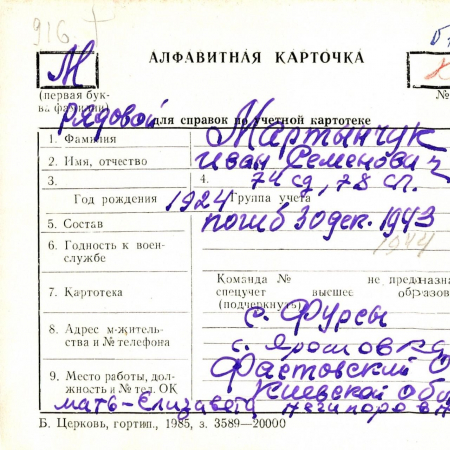 916
АЛФАВИТНАЯ КАРТОЧКА
М
(первая бук-
ва фамилии)
№
Рядовой
для справок по учетной картотеке
1. Фамилия Мартынчук
2. Имя, отчество Иван Семенович
3. 4. 74 сд, 78 сп.
Год рождения 1924 Группа учета
5. Состав погиб 30 дек. 1943
1944
6. Годность к воен-
службе
Команда № не предназна
7. Картотека спецучет высшее образов
(подчеркнуть)
с. Фурсы
8. Адрес м-житель-
ства и № телефона с. Ярошовка
Фастовский
9. Место работы, дол-
жность и № тел. ОК Киевской Обл
мать-Елизавета
Б. Церковь, гортип., 1985, з. 3589—20000